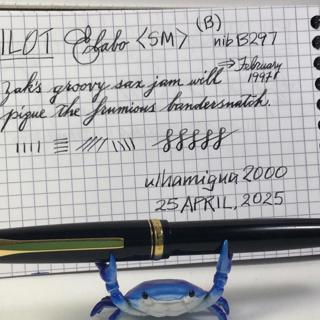 ILOT Elabo <SM> (B) nib B297
⇒ February 1997
Zak's groovy sax jam will
pique the frumious bandersnatch.
ulhamigua2000
25 APRIL, 2025